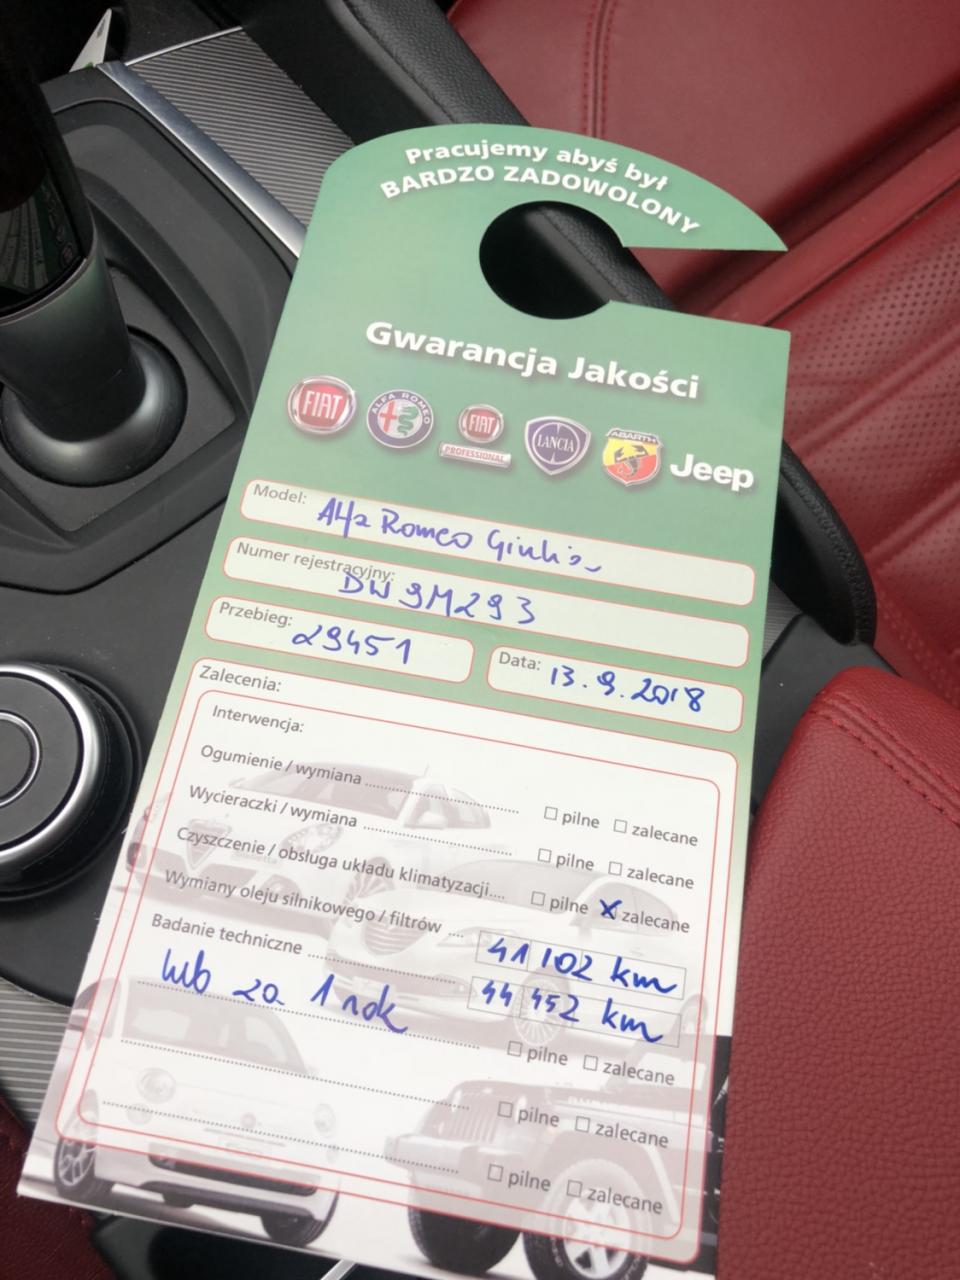 Pracujemy abyś był
BARDZO ZADOWOLONY
Gwarancja Jakości
FIAT
ALFA ROMEO
FIAT
PROFESSIONAL
LANCIA
ABARTH
Jeep
Model: Alfa Romeo Giulia
Numer rejestracyjny: DW 9M293
Przebieg: 29451
Data: 13.9.2018
Zalecenia:
Interwencja:
Ogumienie / wymiana .......... □ pilne □ zalecane
Wycieraczki / wymiana .......... □ pilne □ zalecane
Czyszczenie / obsługa układu klimatyzacji.... □ pilne X zalecane
Wymiany oleju silnikowego / filtrów .... 41 102 km
Badanie techniczne .......... 44 452 km
lub za 1 rok □ pilne □ zalecane
□ pilne □ zalecane
□ pilne □ zalecane